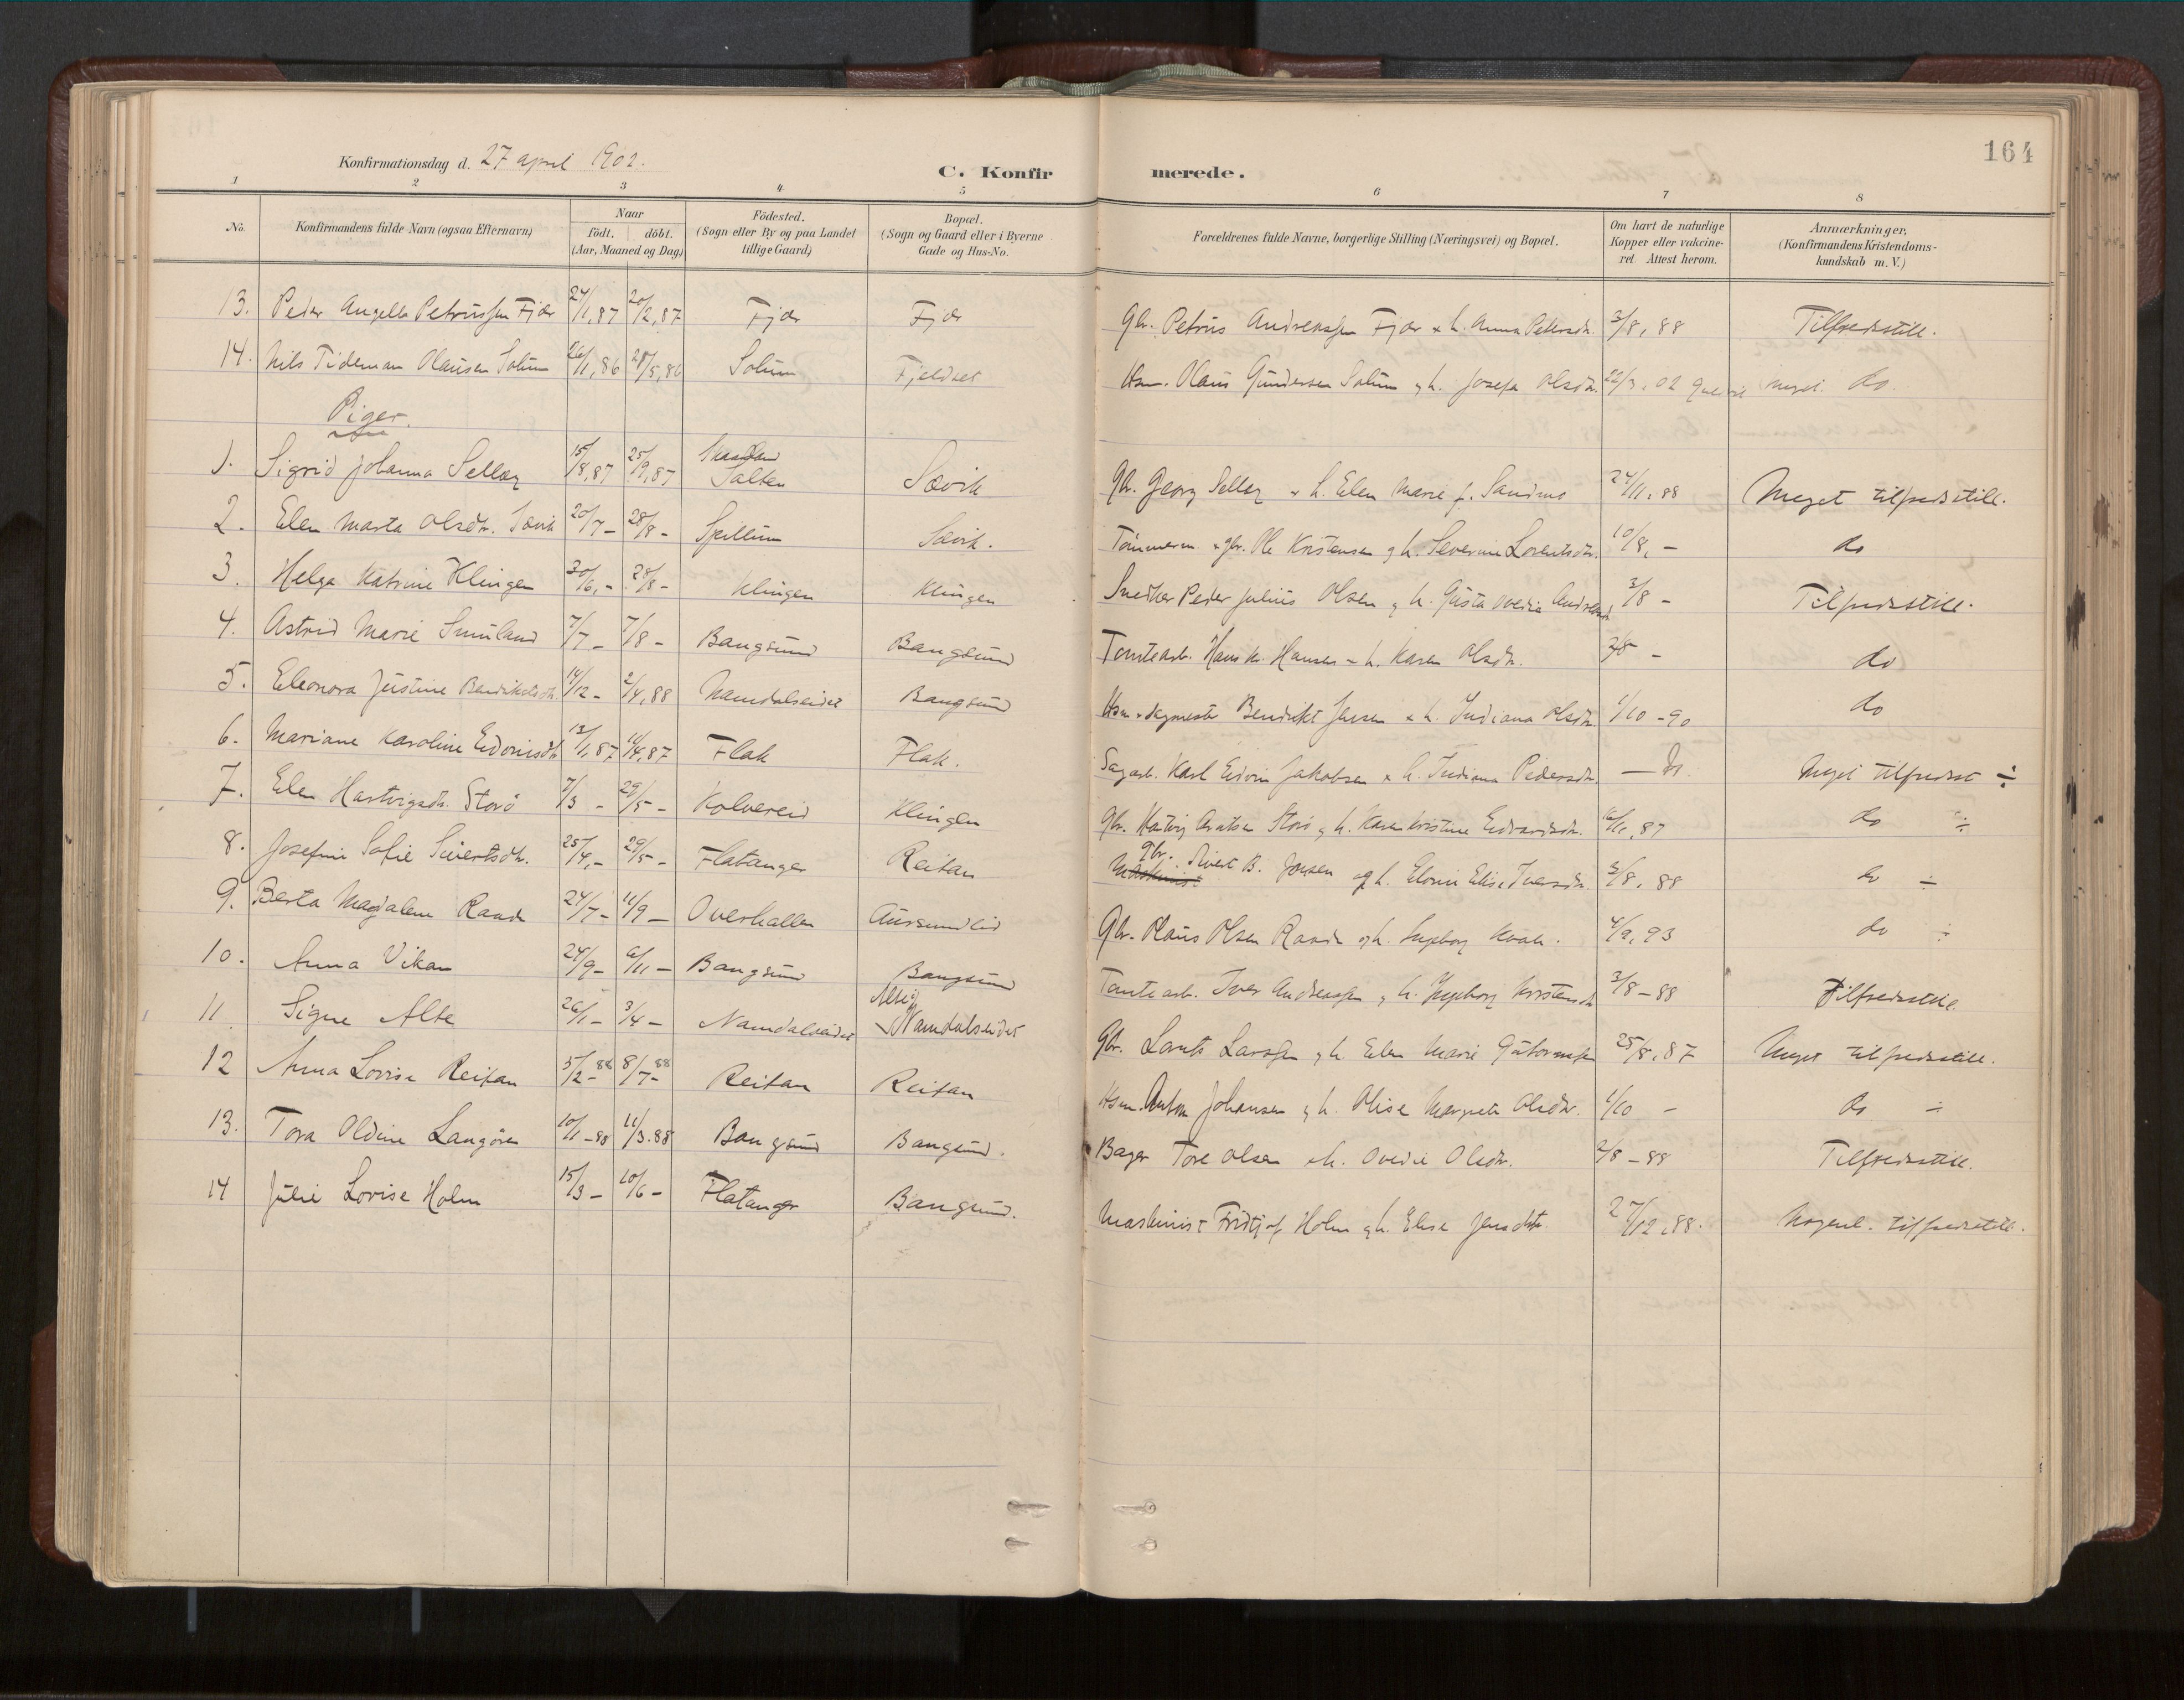 164
Konfirmationsdag d. 27 april 1902.
C. Konfirmerede.
1 2 3 4 5 6 7 8
No. Konfirmandens fulde Navn (ogsaa Efternavn) Naar født. døbt. (Aar, Maaned og Dag) Födested. (Sogn eller By og paa Landet tillige Gaard) Bopæl. (Sogn og Gaard eller i Byerne Gade og Hus-No. Forældrenes fulde Navne, borgerlige Stilling (Næringsvei) og Bopæl. Om havt de naturlige Kopper eller vakcineret. Attest herom. Anmærkninger, (Konfirmandens Kristendomskundskab m. V.)
13. Peder Angell Petrussen Fjær 24/1,87 20/2,87 Fjær Fjær Gbr. Petrus Andreassen Fjær & h. Anna Petersdr. 3/8, 88 Tilfredsstill.
14. Nils Tideman Olausen Solum 26/1,86 /5,86 Solum Fjeldset Hsm. Olaus Gundersen Solum og h. Josefa Olsdr. 22/3, 02 meget do.
Piger.
1. Sigrid Johanna Selley 15/8,87 25/9,87 Salten Sævik Gbr. Georg Selley & h. Elen Marie f. Sandmo 24/11, 88 Meget tilfredsstill.
2. Elen Marta Olsdr. Sævik 20/7 - 28/8 - Spillum Sævik. Tømmerm. & gbr. Ole Kristensen og h. Severine Lorentsdr. 10/8, - do
3. Helga Katrine Klingen 30/6, - 28/8 - Klingen Klingen Snedker Peder Julius Olsen og h. Gusta Ovedia 3/8 - Tilfredsstill.
4. Astrid Marie Smuland 7/7 - 7/8 - Bangsund Bangsund Tomtearb. Hans K. Hansen & h. Karen Olsdr. 3/8 - do
5. Eleonora Justine Bendiktsdr. 14/12 - 2/4,88 Namdalseidet Bangsund Hsm. & sagmester Bendikt Jensen & h. Indiana Olsdr. 1/10 - 90 do
6. Mariane Karoline Edvinsdr. 13/1,87 11/4,87 Flak Flak. Sagarb. Karl Edvin Jakobsen & h. Indiana Pedersdr. — do. Meget tilfredsst ÷
7. Elen Hartvigsdr. Storø 7/3 - 29/5 - Kolvereid Klingen Gbr. Hartvig Arntsen Storø og h. Karen Kristine Edvardsdr. /11, 87 do ÷
8. Josefine Sofie Sivertsdr. 25/4, - 29/5 - Flatanger Reitan Gbr. Sivert B. Jonsen og h. Elise Iversdr. 3/8, 88 do ÷
9. Berta Magdalene Raade 24/7 - 11/9 - Overhallen Aursundlid Gbr. Olaus Olsen Raade og h. Ingeborg 4/9, 93 do ÷
10. Anna Vikan 24/9 - 6/11 - Bangsund Bangsund Tomtearb. Iver Andreassen og h. Ingeborg Kristensdr. 3/8 - 88 Tilfredsstill.
11. Signe Alte 26/1 - 3/4 - Namdalseidet Namdalseidet Gbr. Lornts Larssen og h. Elen Marie 25/8, 87 Meget tilfredsstill.
12 Anna Lovise Reitan 5/2 - 88 8/7 - 88 Reitan Reitan Hsm. Anton Johansen og h. Olise Margrete Olsdr. 1/10 - do ÷
13. Tora Oldine Langøren 10/1 - 88 11/3.88 Bangsund Bangsund. Bager Tore Olsen & h. Ovedie Olsdr. 2/8 - 88 Tilfredsstill.
14 Julie Lovise Holm 15/3 - 10/6 - Flatangr Bangsund. Maskinist Fridtjof Holm og h. Elise Jensdtr. 27/12, 88. Nogenl. tilfredsstill.